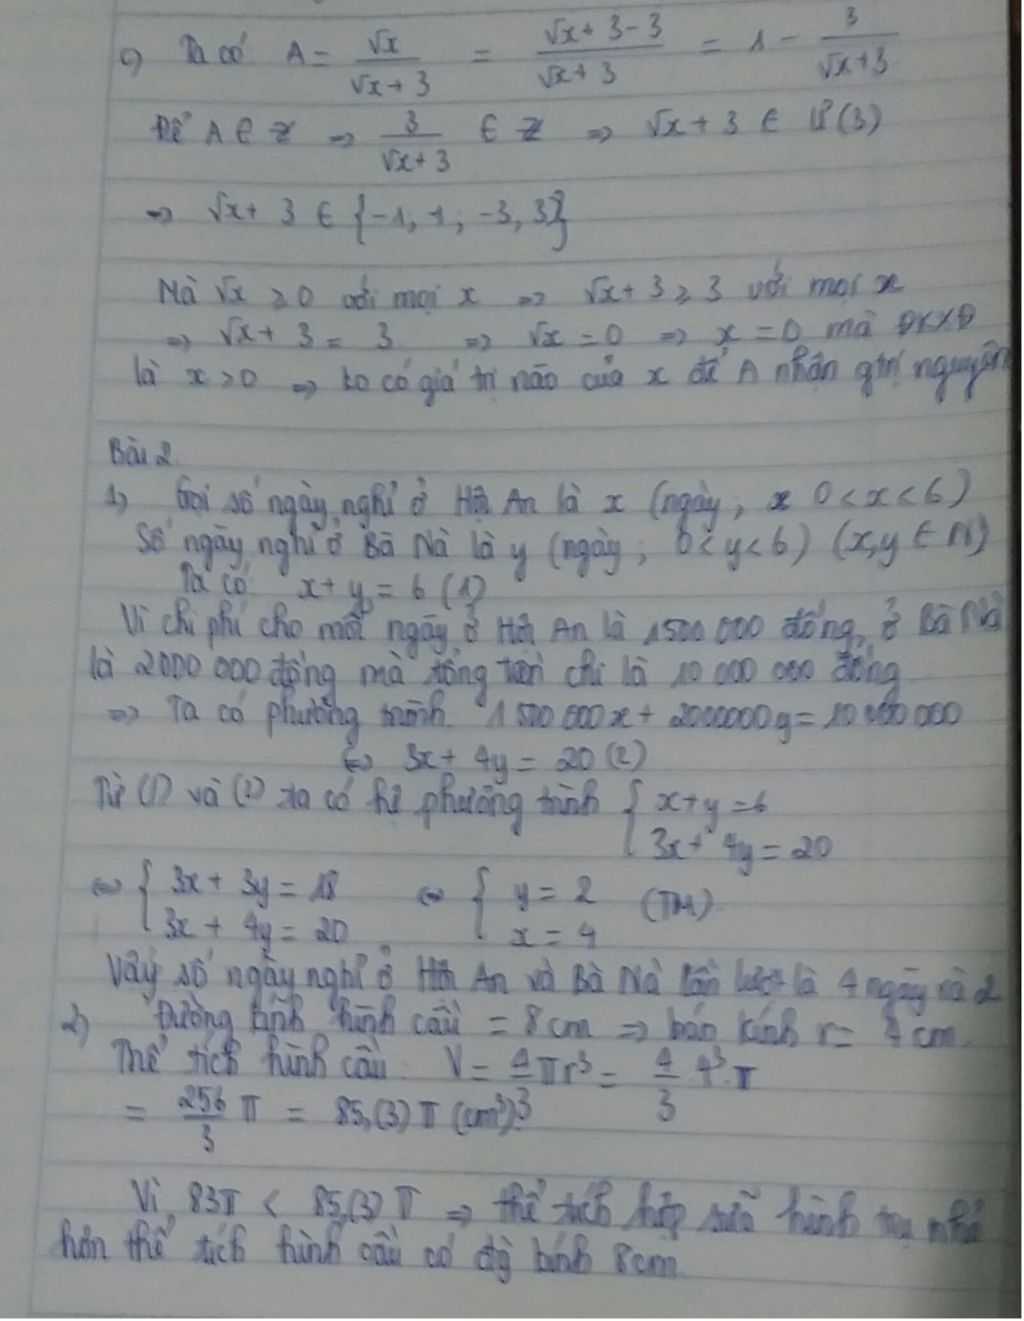 c) Ta có A = √x / (√x + 3) = (√x + 3 - 3) / (√x + 3) = 1 - 3 / (√x + 3)
Để A ∈ Z => 3 / (√x + 3) ∈ Z => √x + 3 ∈ Ư(3)
=> √x + 3 ∈ {-1, 1, -3, 3}
Mà √x ≥ 0 với mọi x => √x + 3 ≥ 3 với mọi x
=> √x + 3 = 3 => √x = 0 => x = 0 mà ĐKXĐ
là x > 0 => ko có giá trị nào của x để A nhận gtrị nguyên
Bài 2
1) Gọi số ngày nghỉ ở Hội An là x (ngày, 0 < x < 6)
Số ngày nghỉ ở Bà Nà là y (ngày; 0 < y < 6) (x,y ∈ N)
Ta có x + y = 6 (1)
Vì chi phí cho mỗi ngày ở Hội An là 1500 000 đồng, ở Bà Nà
là 2000 000 đồng mà tổng tiền chi là 10 000 000 đồng
=> Ta có phương trình. 1 500 000x + 2000000y = 10 000 000
<=> 3x + 4y = 20 (2)
Từ (1) và (2) ta có hệ phương trình { x + y = 6
3x + 4y = 20
<=> { 3x + 3y = 18 <=> { y = 2 (TM)
3x + 4y = 20 x = 4
Vậy số ngày nghỉ ở Hội An và Bà Nà lần lượt là 4 ngày và 2
2) Đường kính hình cầu = 8cm => bán kính r = 4 cm
Thể tích hình cầu. V = 4/3 πr³ = 4/3 . 4³ . π
= 256/3 π = 85,(3) π (cm³)
Vì 83π < 85,(3) π => thể tích hộp sữa hình trụ nhỏ
hơn thể tích hình cầu có đg kính 8cm